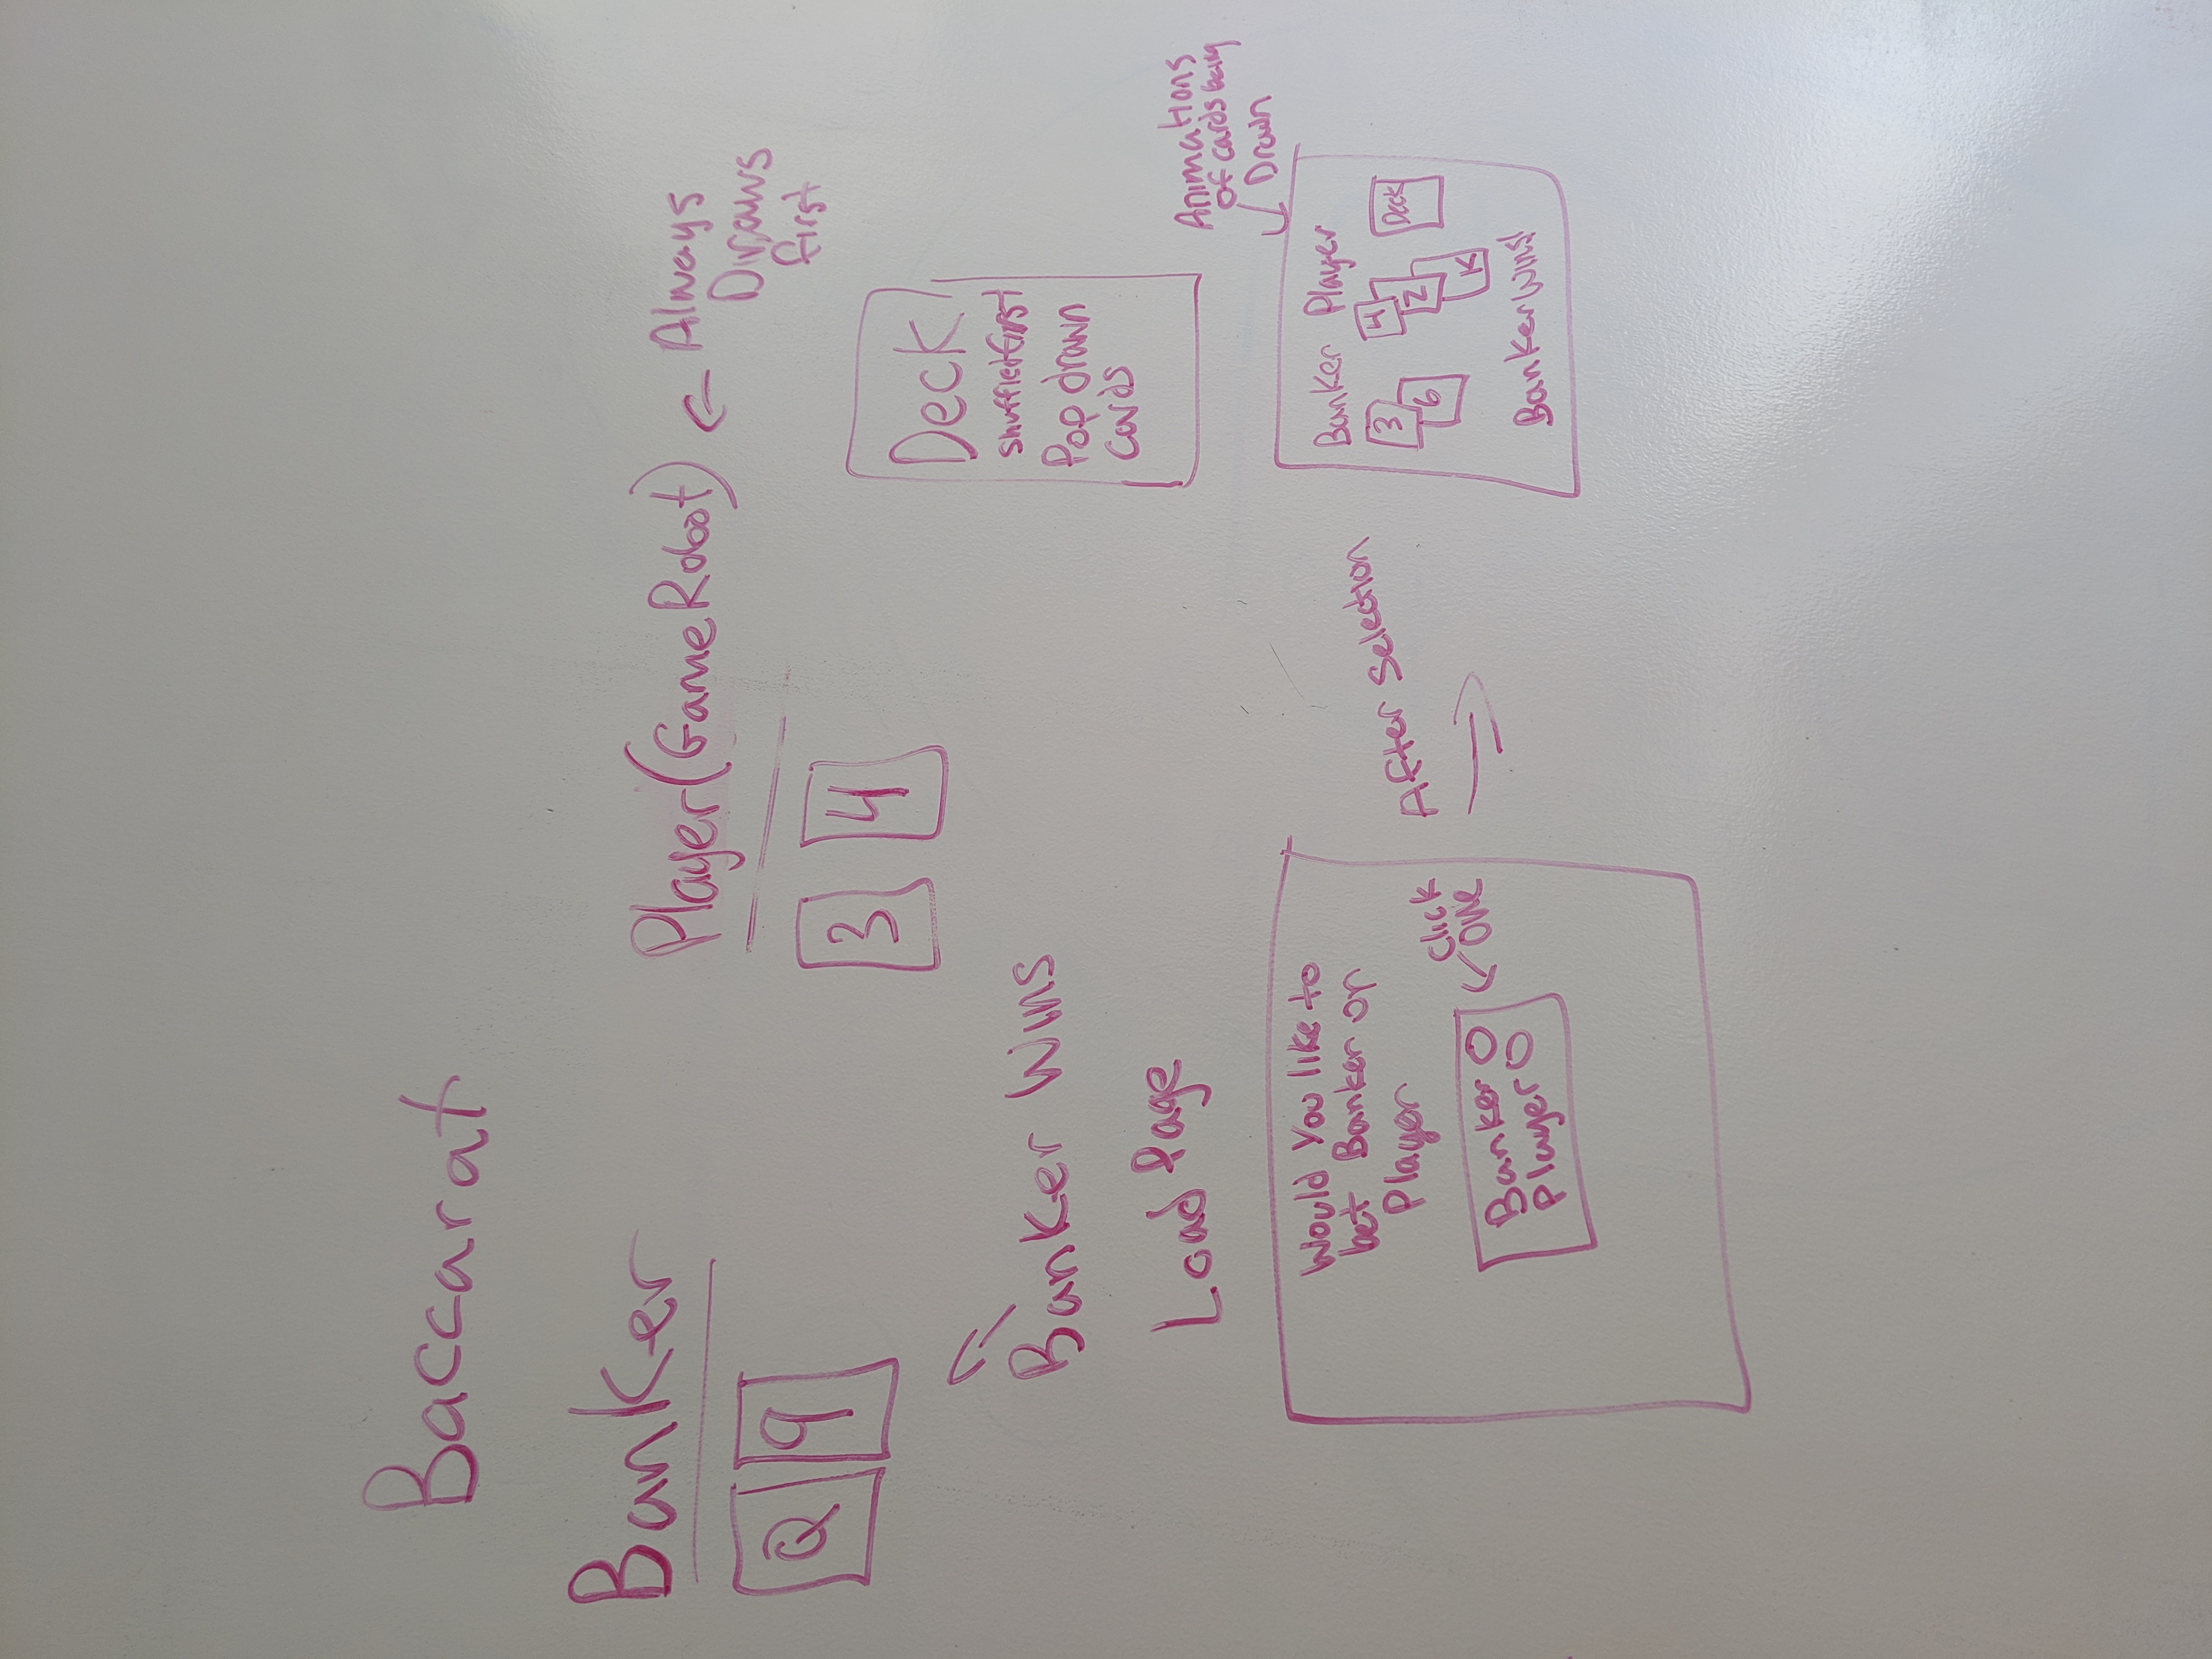 Baccarat
Banker
Q 9
Player (Game Robot) ← Always
Draws
first
3 4
Banker Wins
Deck
shuffled first
Pop drawn
cards
Load Page
Would You like to
bet Banker or
Player
Banker
Player
Click
One
After Selection
Animations
of cards being
Drawn
Banker Player
3
6
4
2
K
Deck
Banker Wins!